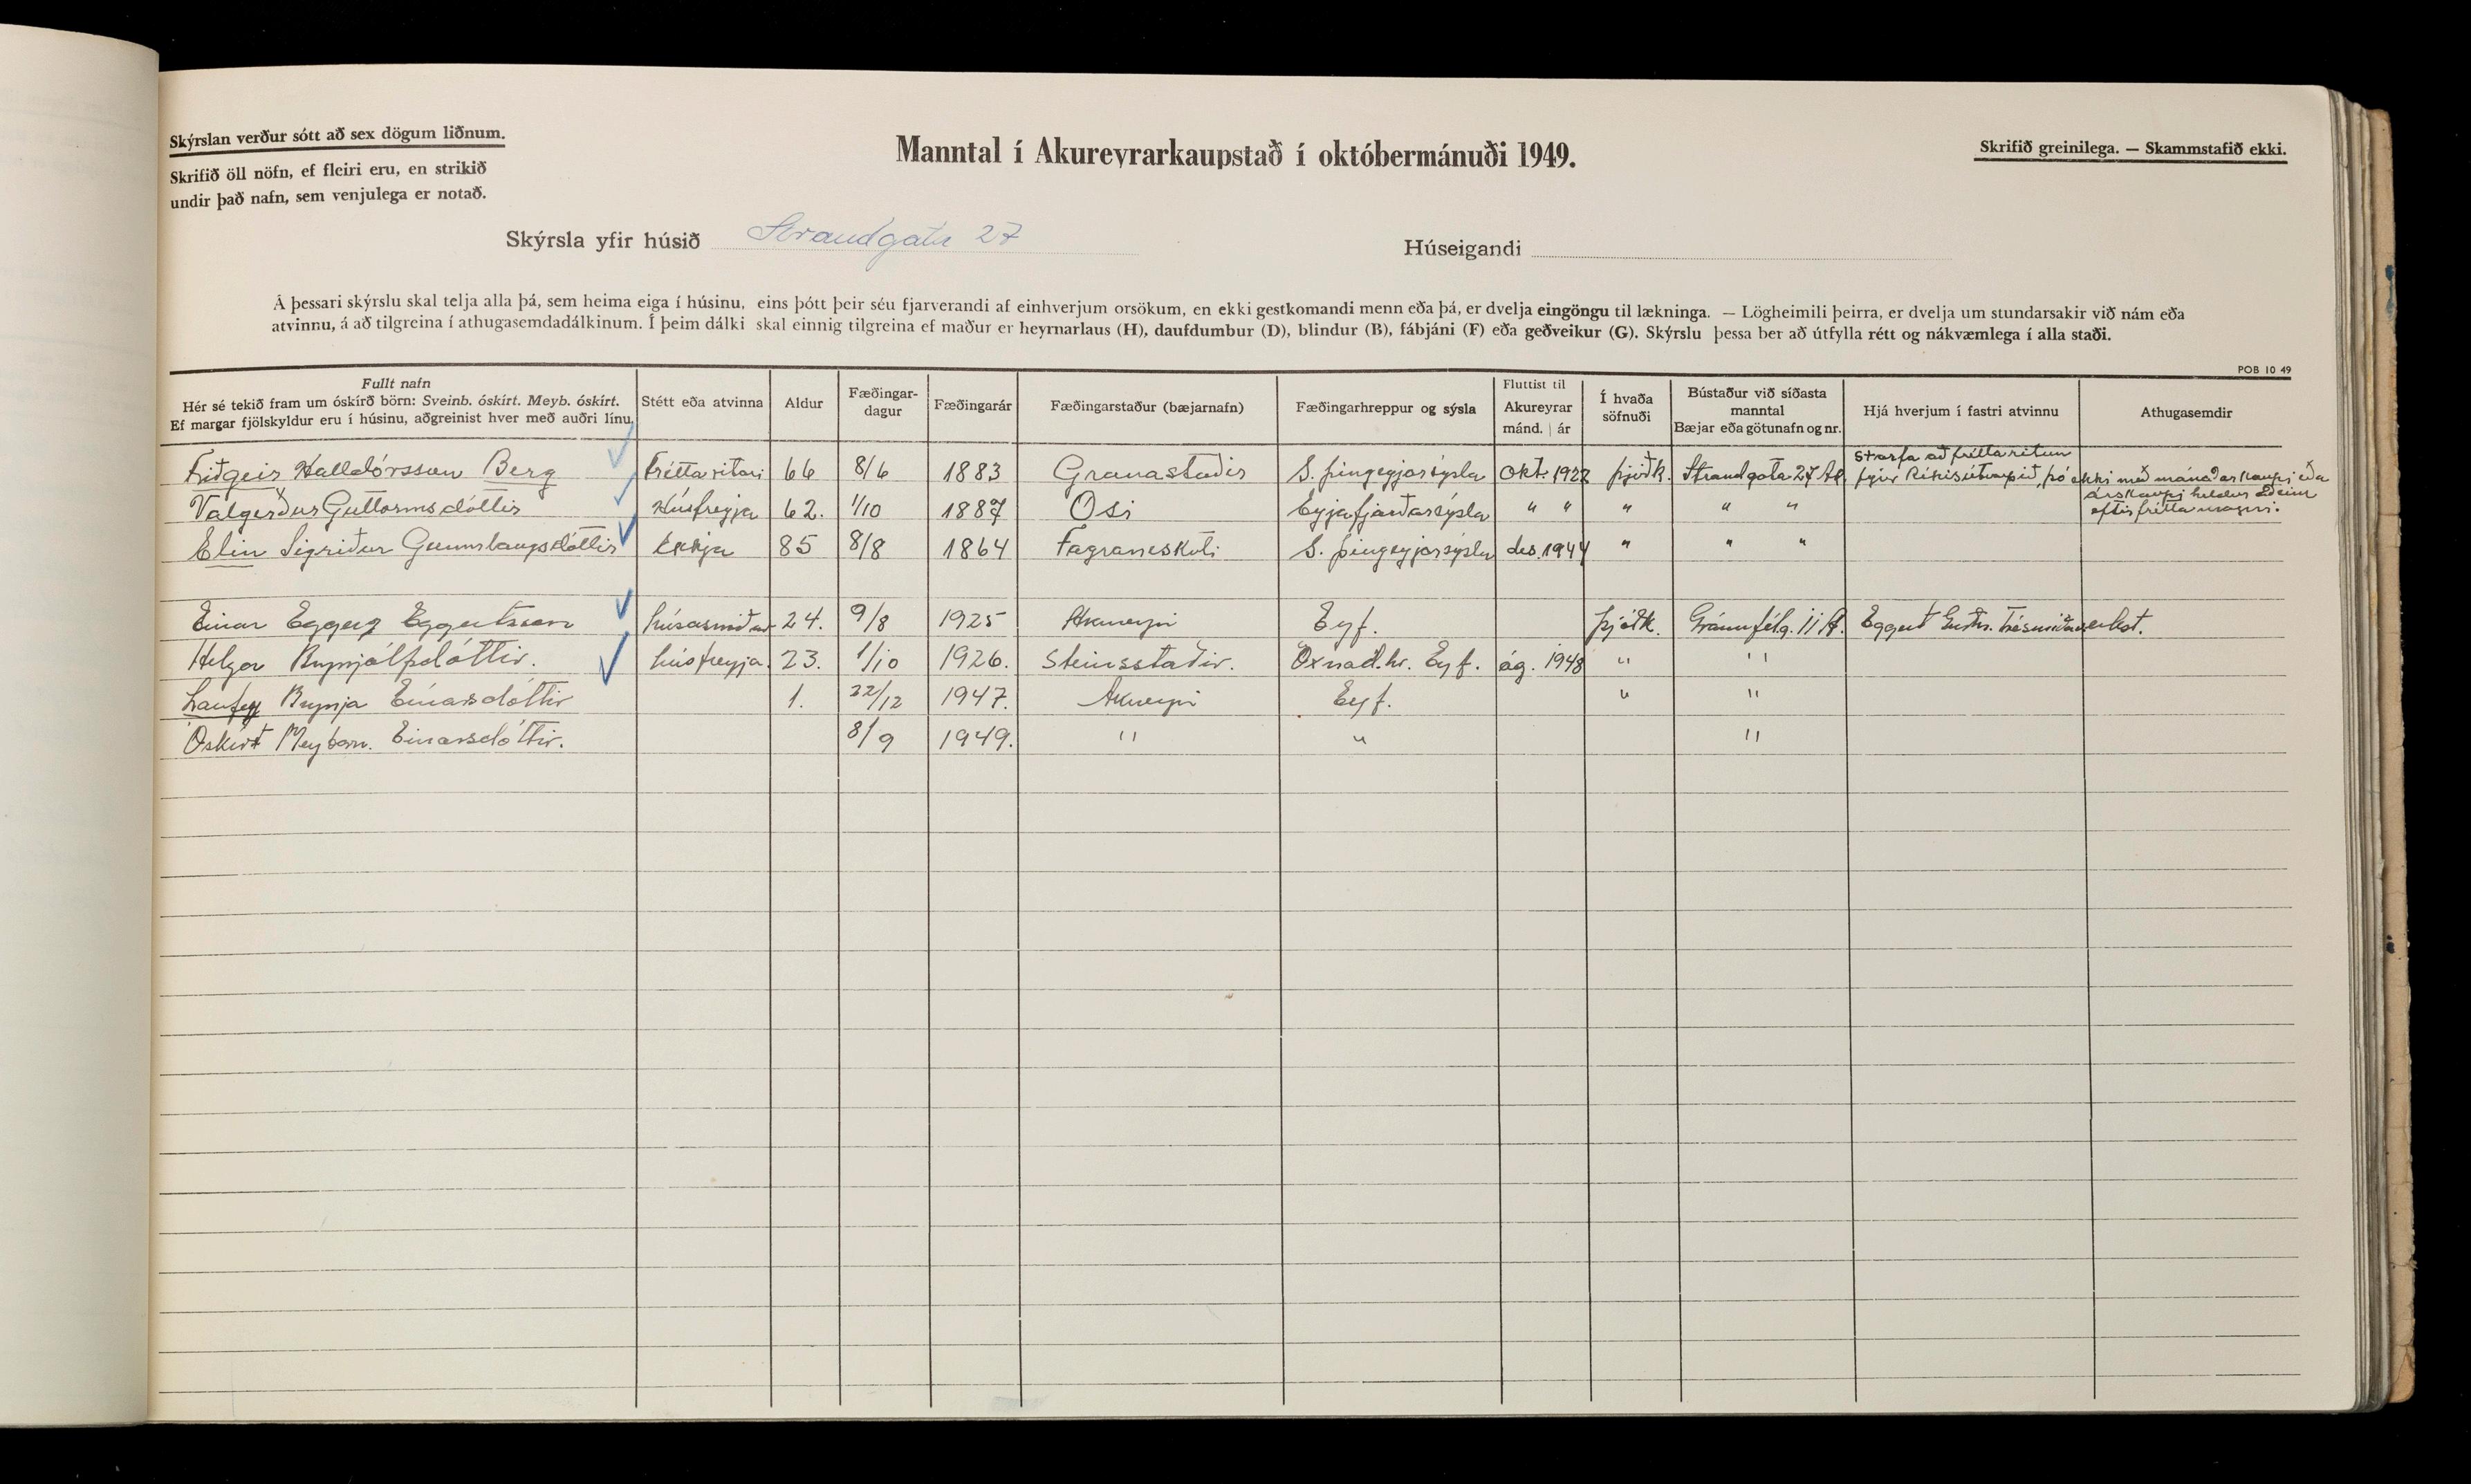 Skýrslan verður sótt að sex dögum liðnum.
Skrifið öll nöfn, ef fleiri eru, en strikið
undir það nafn, sem venjulega er notað.
Manntal í Akureyrarkaupstað í októbermánuði 1949.
Skrifið greinilega. — Skammstafið ekki.
Skýrsla yfir húsið Strandgata 27
Húseigandi
Á þessari skýrslu skal telja alla þá, sem heima eiga í húsinu, eins þótt þeir séu fjarverandi af einhverjum orsökum, en ekki gestkomandi menn eða þá, er dvelja eingöngu til lækninga. — Lögheimili þeirra, er dvelja um stundarsakir við nám eða
atvinnu, á að tilgreina í athugasemdadálkinum. Í þeim dálki skal einnig tilgreina ef maður er heyrnarlaus (H), daufdumbur (D), blindur (B), fábjáni (F) eða geðveikur (G). Skýrslu þessa ber að útfylla rétt og nákvæmlega í alla staði.
POB 10 49
Fullt nafn
Hér sé tekið fram um óskírð börn: Sveinb. óskírt. Meyb. óskírt.
Ef margar fjölskyldur eru í húsinu, aðgreinist hver með auðri línu.
Stétt eða atvinna
Aldur
Fæðingar-
dagur
Fæðingarár
Fæðingarstaður (bæjarnafn)
Fæðingarhreppur og sýsla
Fluttist til
Akureyrar
mánd. | ár
Í hvaða
söfnuði
Bústaður við síðasta
manntal
Bæjar eða götunafn og nr.
Hjá hverjum í fastri atvinnu
Athugasemdir
Friðgeir Halldórsson Berg Fréttaritari 66 8/6 1883 Granastaðir S. Þingeyjarsýsla Okt. 1922 þjóðk. Strandgata 27 Ak. Starfa að fréttaritun
fyrir Ríkisútvarpið, þó ekki með mánaðarkaupi eða
árskaupi heldur
eftir fréttamagni.
Valgerður Guttormsdóttir Húsfreyja 62. 1/10 1887 Ósi Eyjafjarðarsýsla " " " " "
Elin Sigriður Gunnlaugsdóttir Ekkja 85 8/8 1864 Fagraneskoti S. Þingeyjarsýsla des. 1944 " " "
Einar Eggerz Eggertsson húsasmiður 24. 9/8 1925 Akureyri Eyf. þjóðk. Gránufélg. 11 A. Eggert Guðm. Trésmíðaverkst.
Helga Brynjólfsdóttir. húsfreyja. 23. 1/10 1926. Steinsstaðir. Öxnad.hr. Eyf. ág. 1948 " "
Laufey Brynja Einarsdóttir 1. 22/12 1947. Akureyri Eyf. " "
Óskírt Meybarn. Einarsdóttir. 8/9 1949. " " "